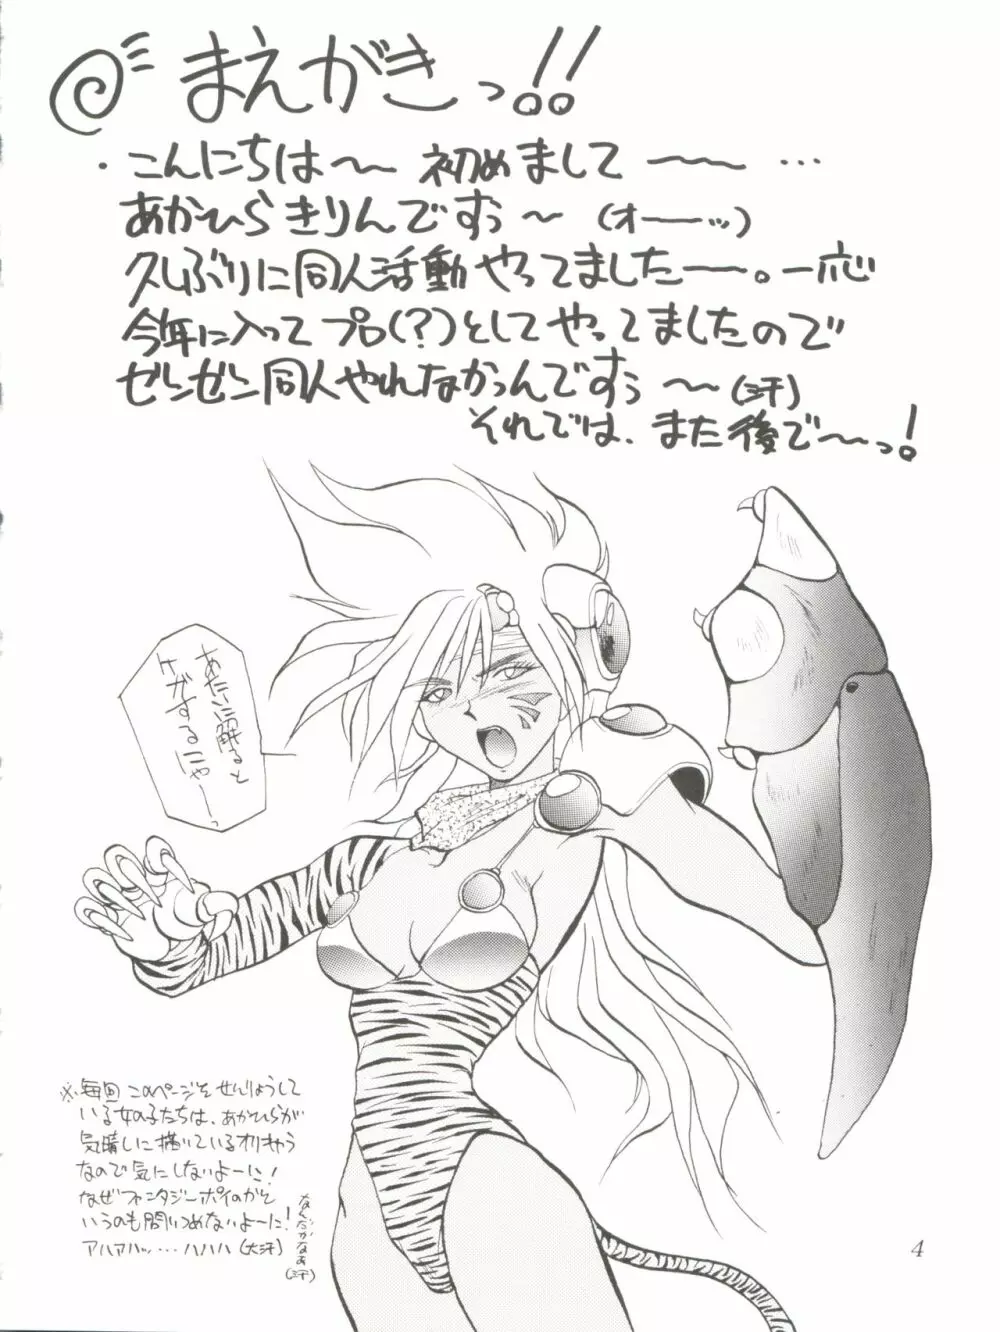 まえがきっ!!
・こんにちは〜 初めまして 〜〜 …
あかひらきりんですぅ〜 (オーーッ)
久しぶりに同人活動やってましたーー。一応
今年に入ってプロ(?)としてやってましたので
ゼンゼン同人やれなかったんですぅ〜(汗)
それでは、また後で〜っ!
あたいに触ると
ケガするにゃー
※毎回このページをせんりょうして
いる女の子たちは、あかひらが
気晴しに描いているオリキャラ
なので気にしないよーに!
なぜファンタジーポイのかと
いうのも問いつめないよーに!
アハアハッ・・・ハハハ(大汗)
なんだかなぁ
(汗)
4